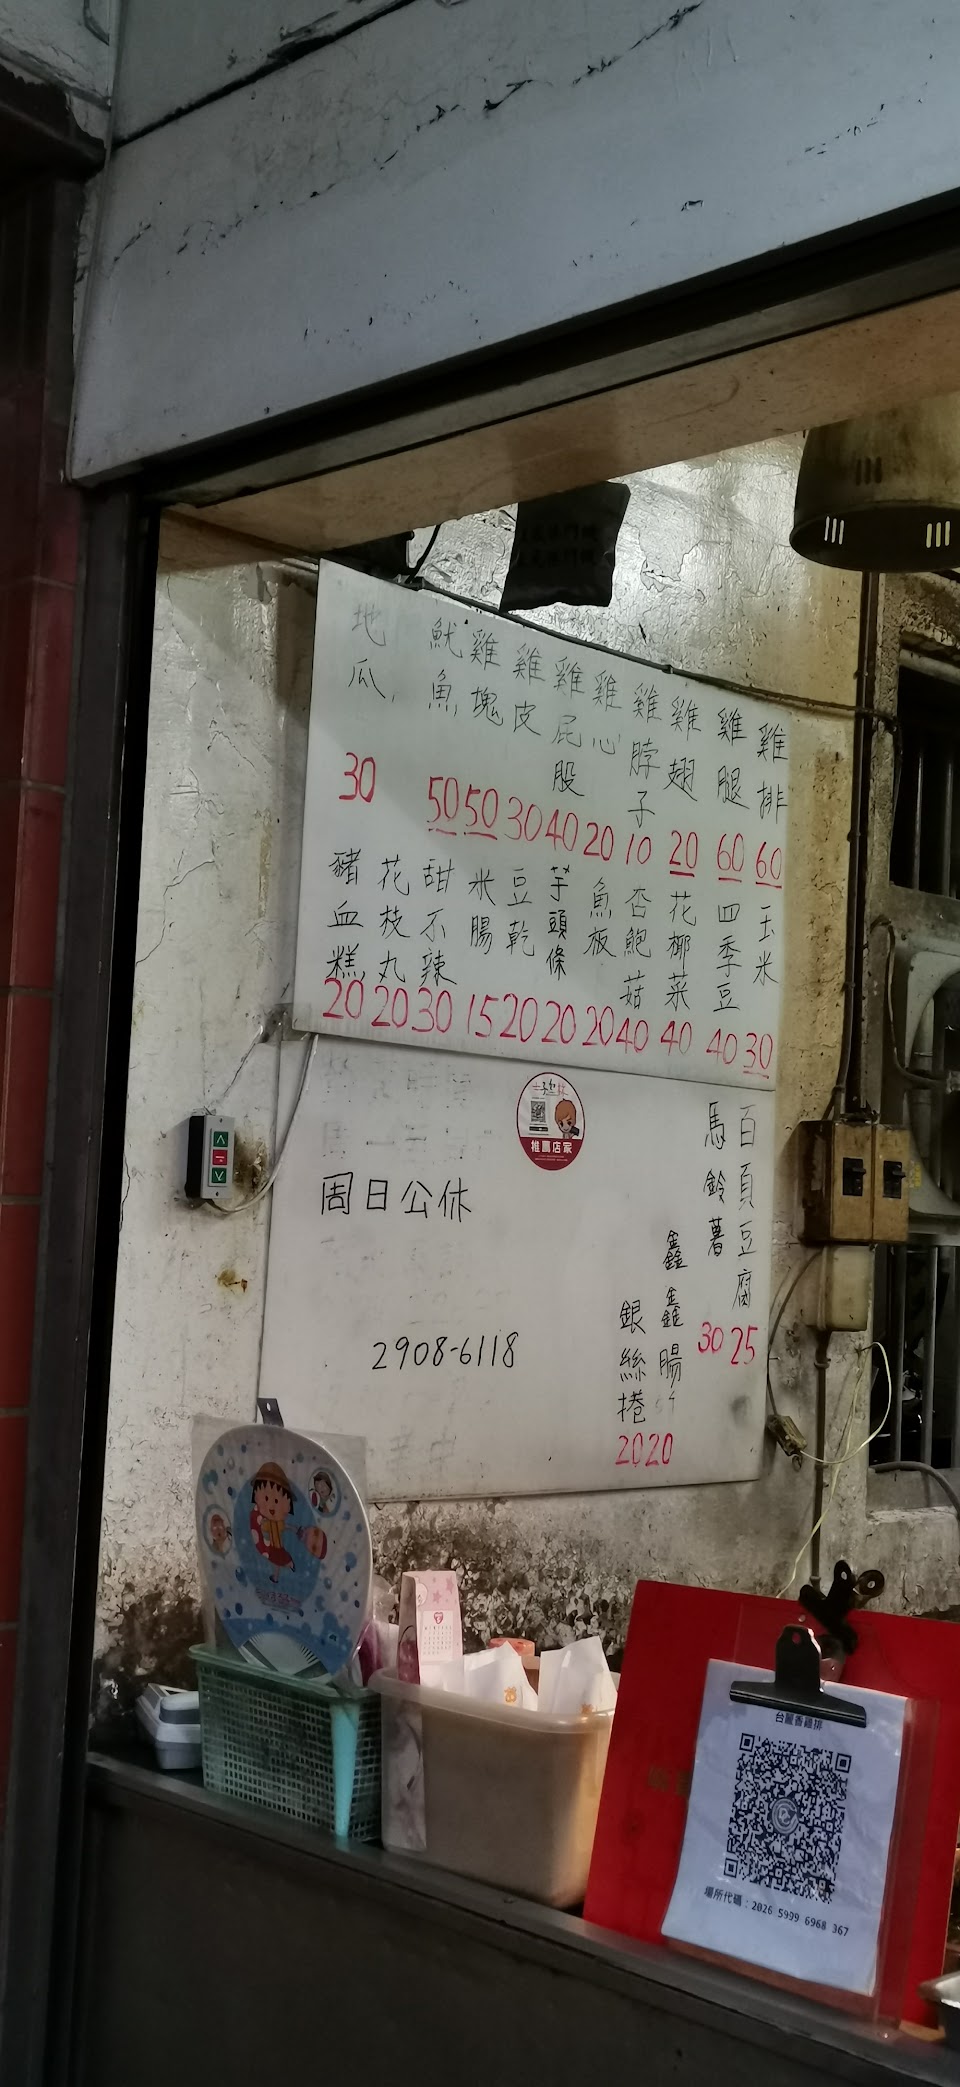 雞排 60
雞腿 60
雞翅 20
雞脖子 10
雞心 20
雞屁股 40
雞皮 30
雞塊 50
魷魚 50
地瓜 30
玉米 30
四季豆 40
花椰菜 40
杏鮑菇 40
魚板 20
芋頭條 20
豆乾 20
米腸 15
甜不辣 30
花枝丸 20
豬血糕 20
百頁豆腐 25
馬鈴薯 30
鑫鑫腸 20
銀絲捲 20
推薦店家
周日公休
2908-6118
台灣香雞排
場所代碼：2026 5999 6968 367